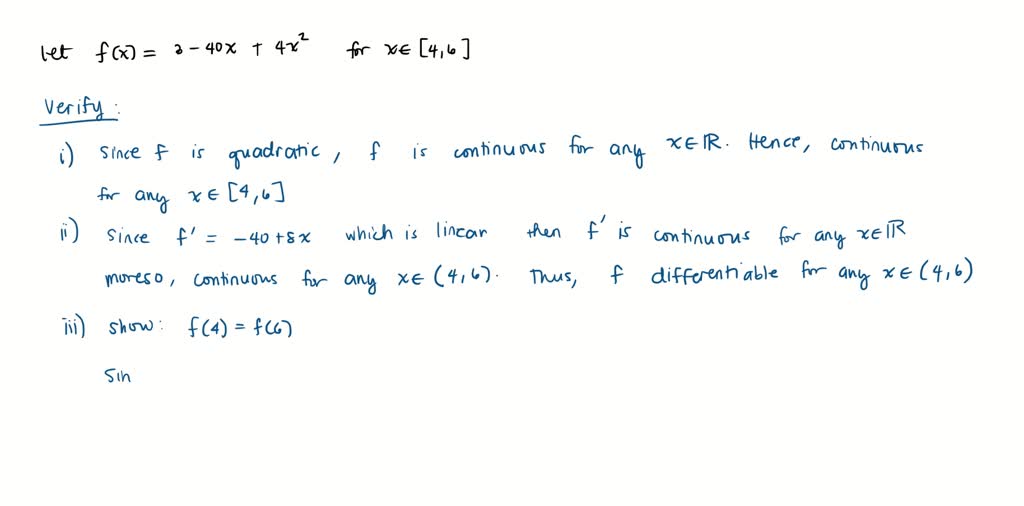 let f(x) = 2 - 40x + 4x² for x∈ [4,6]
Verify:
i) since f is quadratic, f is continuous for any x∈ℝ. Hence, continuous
for any x∈ [4,6]
ii) since f' = -40+8x which is linear then f' is continuous for any x∈ℝ
moreso, continuous for any x∈ (4,6). Thus, f differentiable for any x∈ (4,6)
iii) show: f(4) = f(6)
Sin